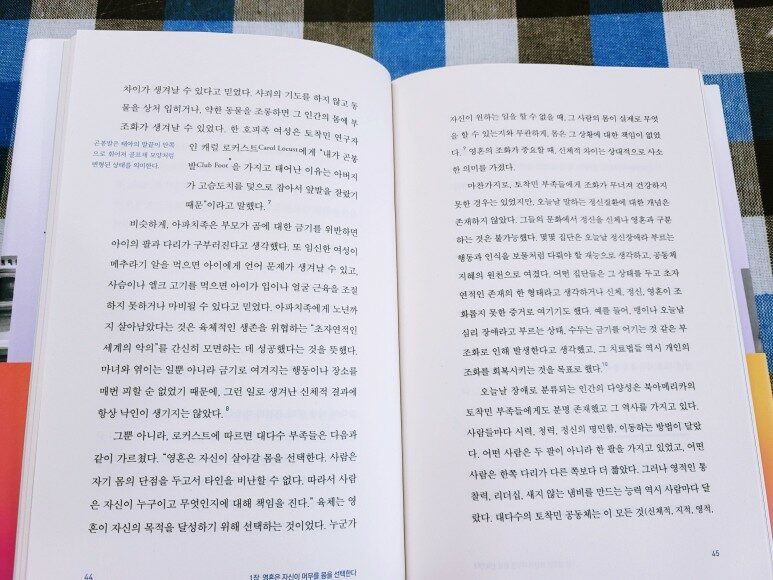 차이가 생겨날 수 있다고 믿었다. 사죄의 기도를 하지 않고 동
물을 상처 입히거나, 약한 동물을 조롱하면 그 인간의 몸에 부
조화가 생겨날 수 있었다. 한 호피족 여성은 토착민 연구자
인 캐럴 로커스트Carol Locust에게 "내가 곤봉
발Club Foot*을 가지고 태어난 이유는 아버지
가 고슴도치를 덫으로 잡아서 앞발을 잘랐기
때문"이라고 말했다.7
곤봉발은 태아의 발끝이 안쪽
으로 휘어져 골프채 모양처럼
변형된 상태를 의미한다.
비슷하게, 아파치족은 부모가 곰에 대한 금기를 위반하면
아이의 팔과 다리가 구부러진다고 생각했다. 또 임신한 여성이
메추라기 알을 먹으면 아이에게 언어 문제가 생겨날 수 있고,
사슴이나 엘크 고기를 먹으면 아이가 입이나 얼굴 근육을 조절
하지 못하거나 마비될 수 있다고 믿었다. 아파치족에게 노년까
지 살아남았다는 것은 육체적인 생존을 위협하는 "초자연적인
세계의 악의"를 간신히 모면하는 데 성공했다는 것을 뜻했다.
마녀와 엮이는 일뿐 아니라 금기로 여겨지는 행동이나 장소를
매번 피할 순 없었기 때문에, 그런 일로 생겨난 신체적 결과에
항상 낙인이 생기지는 않았다.8
그뿐 아니라, 로커스트에 따르면 대다수 부족들은 다음과
같이 가르쳤다. "영혼은 자신이 살아갈 몸을 선택한다. 사람은
자기 몸의 단점을 두고서 타인을 비난할 수 없다. 따라서 사람
은 자신이 누구이고 무엇인지에 대해 책임을 진다." 육체는 영
혼이 자신의 목적을 달성하기 위해 선택하는 것이었다. 누군가
44
1장. 영혼은 자신이 머무를 몸을 선택한다
자신이 원하는 일을 할 수 없을 때, 그 사람의 몸이 실제로 무엇
을 할 수 있는지와 무관하게, 몸은 그 상황에 대한 책임이 없었
다.9 영혼의 조화가 중요할 때, 신체적 차이는 상대적으로 사소
한 의미를 가졌다.
마찬가지로, 토착민 부족들에게 조화가 무너져 건강하지
못한 경우는 있었지만, 오늘날 말하는 정신질환에 대한 개념은
존재하지 않았다. 그들의 문화에서 정신을 신체나 영혼과 구분
하는 것은 불가능했다. 몇몇 집단은 오늘날 정신장애라 부르는
행동과 인식을 보물처럼 다뤄야 할 재능으로 생각하고, 공동체
지혜의 원천으로 여겼다. 어떤 집단들은 그 상태를 두고 초자
연적인 존재의 한 형태라고 생각하거나 신체, 정신, 영혼이 조
화롭지 못한 증거로 여기기도 했다. 예를 들어, 병이나 오늘날
심리 장애라고 부르는 상태, 수두는 금기를 어기는 것 같은 부
조화로 인해 발생한다고 생각했고, 그 치료법들 역시 개인의
조화를 회복시키는 것을 목표로 했다.10
오늘날 장애로 분류되는 인간의 다양성은 북아메리카의
토착민 부족들에게도 분명 존재했고 그 역사를 가지고 있다.
사람들마다 시력, 청력, 정신의 명민함, 이동하는 방법이 달랐
다. 어떤 사람은 두 팔이 아니라 한 팔을 가지고 있었고, 어떤
사람은 한쪽 다리가 다른 쪽보다 더 짧았다. 그러나 영적인 통
찰력, 리더십, 새지 않는 냄비를 만드는 능력 역시 사람마다 달
랐다. 대다수의 토착민 공동체는 이 모든 것(신체적, 지적, 영적,
45